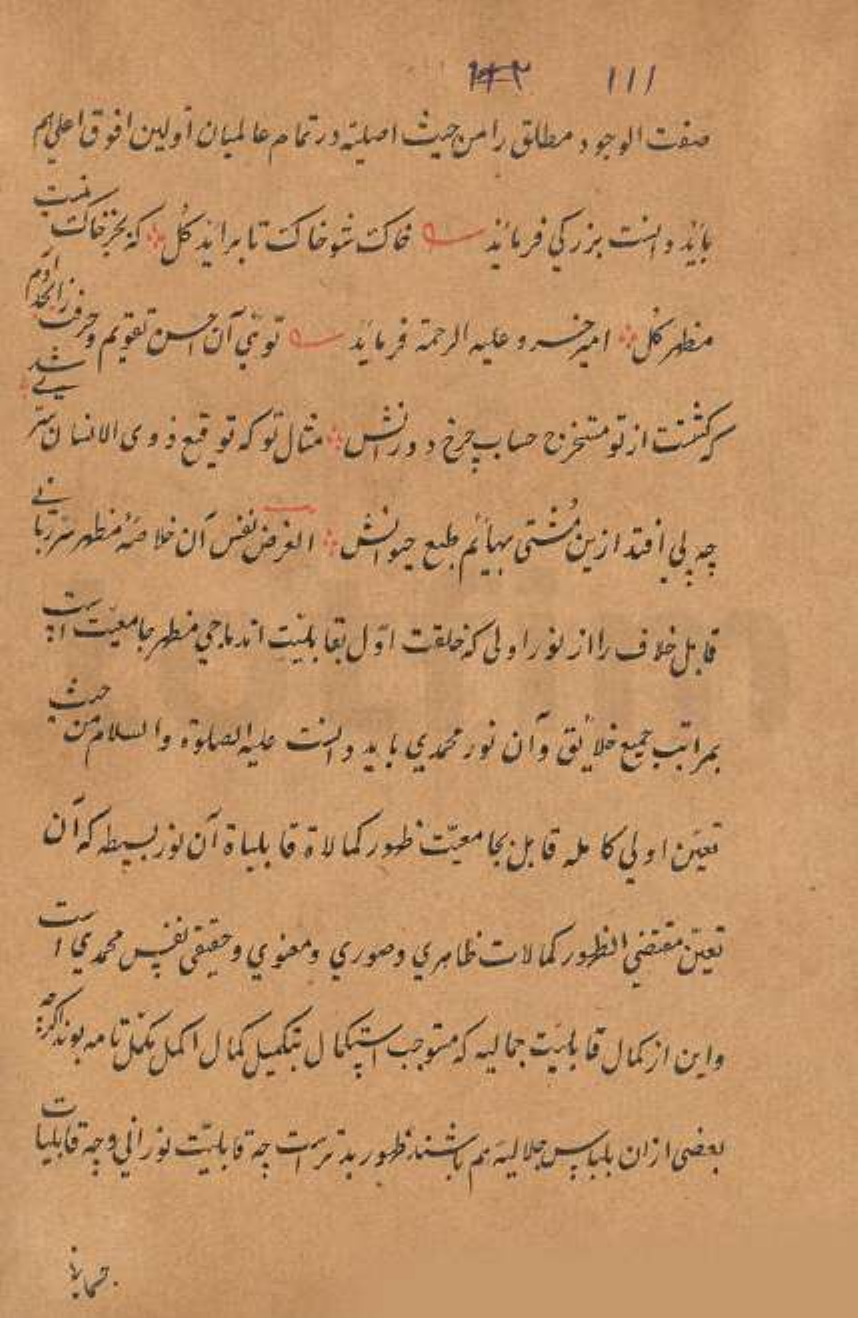 ۱۱۱ ۱۴۲
صفت الوجود مطلق را من حیث اصلیته در تمام عالمیان اولین افوق اعلی هم
باید دانست بزرگی فرماید خاک شو خاک تا براید گل که بجز خاک نیست
مظهر کل امیر خسرو علیه الرحمة فرماید توئی آن احسن تقویم و حرف
که گشت از تو مستخرج حساب چرخ دورانش مثال تو که توقیع ذوی الانسان
چه پی افتد ازین مشتی بهائم طبع حیوانش الغرض نفس آن خلاصهٔ مظهر سرّ ربانی
قابل خلاف را از نور اولی که خلقت اوّل بقابلیّت اندماجی مظهر جامعیّت است
بمراتب جمیع خلایق و آن نور محمدی باید دانست علیه الصلوة والسلام من حیث
تعیّن اولی کامله قابل بجامعیّت ظهور کمالاة قابلیاة آن نور بسیطه که آن
تعیّن مقتضی الظهور کمالات ظاهری و صوری و معنوی و حقیقی نفس محمدی است
و این از کمال قابلیّت جمالیه که مستوجب استکمال بتکمیل کمال اکمل مکمل تامه بوند اگرچه
بعضی ازان بلباس جلالیه هم باشند ظهور بدتر است چه قابلیّت نورانی و چه قابلیات